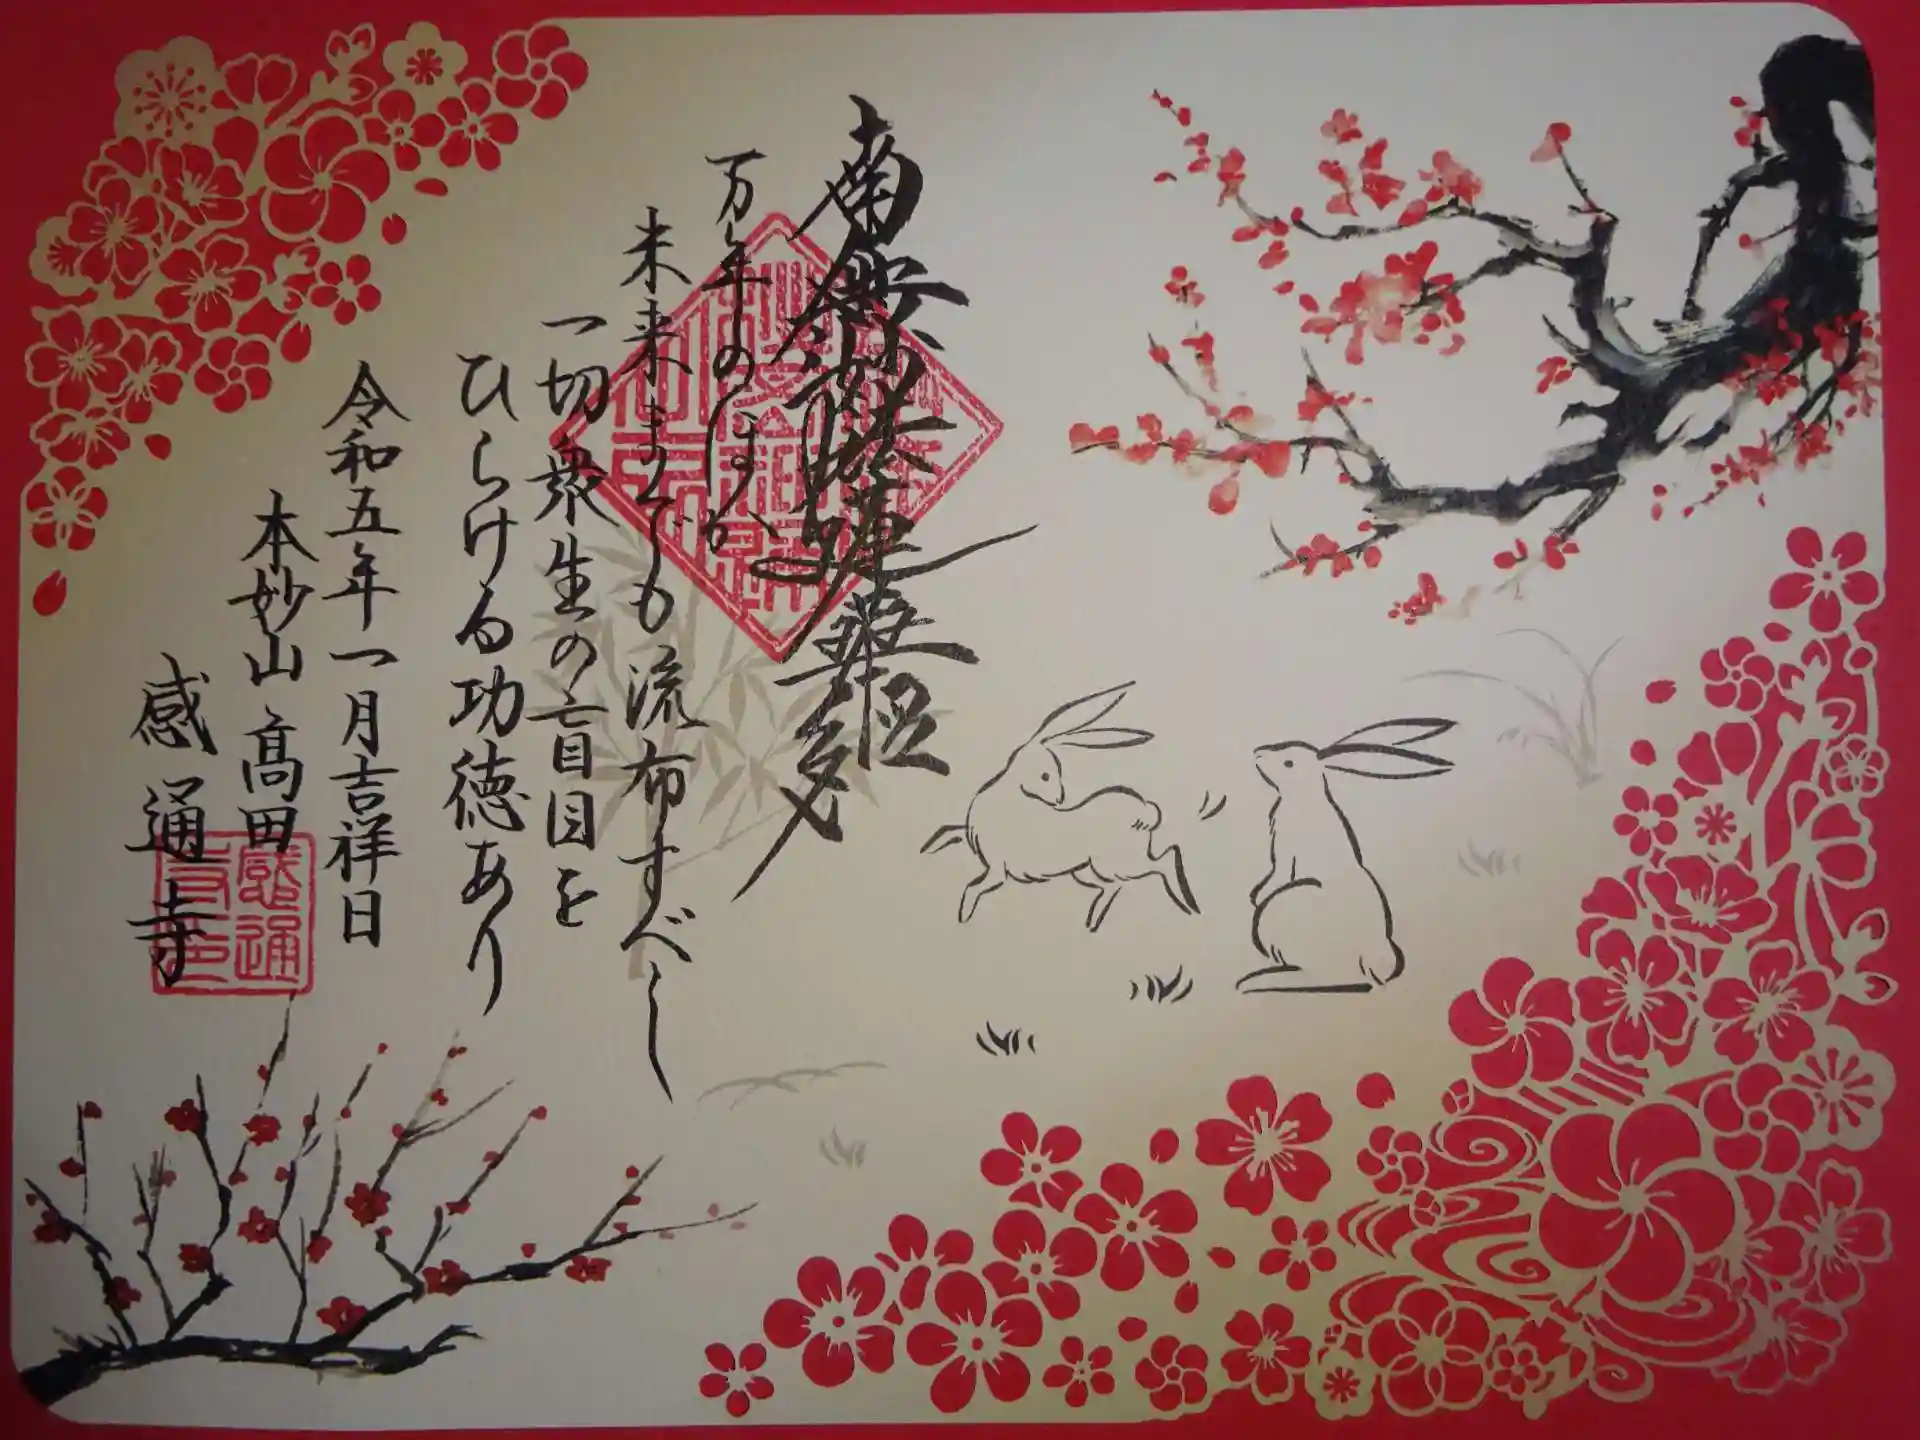 南無妙法蓮華経
万年のほか
未来までも流布すべし
一切衆生の盲目を
ひらける功徳あり
令和五年一月吉祥日
本妙山 髙田
感通寺